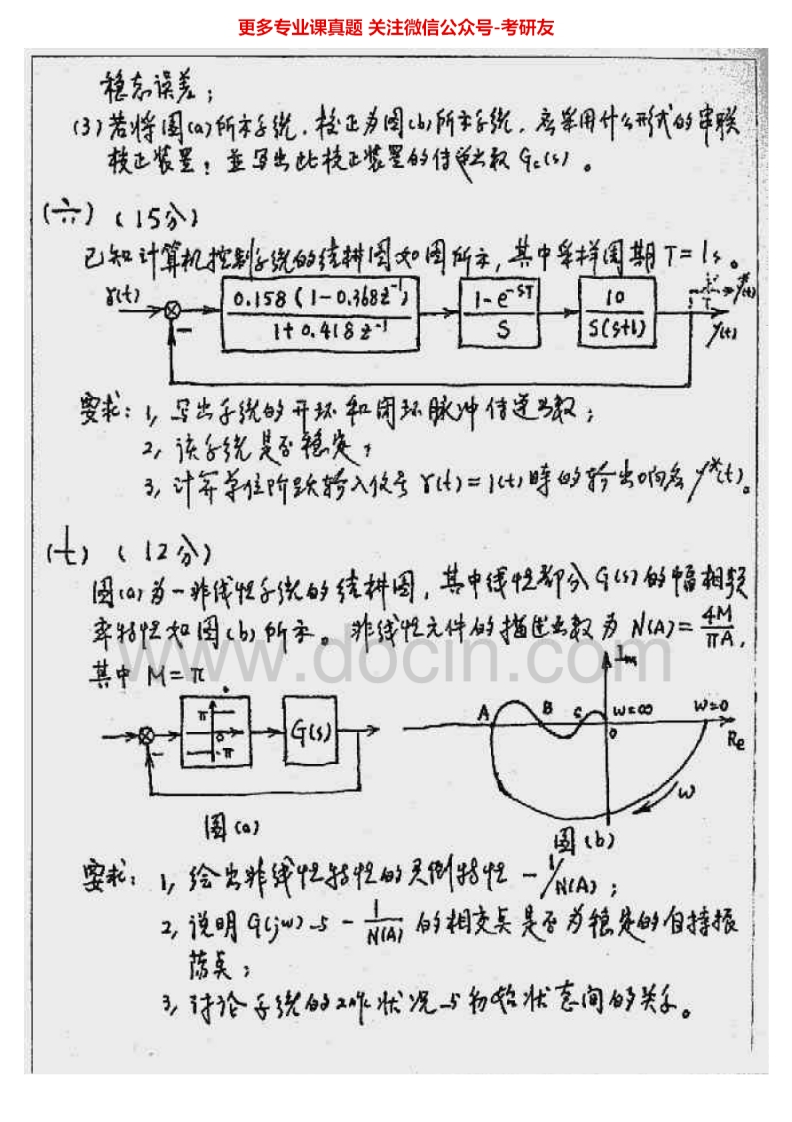 更多专业课真题 关注微信公众号-考研友
稳态误差；
(3) 若将图(a)所示系统，校正为图(b)所示系统，应采用什么形式的串联
校正装置；並写出此校正装置的传递函数 Gc(s)。
(六) (15分)
已知计算机控制系统的结构图如图所示，其中采样周期 T=1s。
r(t)
0.158(1-0.368z⁻¹)
1+0.418z⁻¹
1-e⁻ˢᵀ
S
10
S(S+1)
T
y*(t)
y(t)
要求：1, 写出系统的开环和闭环脉冲传递函数；
2, 该系统是否稳定；
3, 计算单位阶跃输入信号 r(t)=1(t)時的输出响应 y*(t)。
(七) (12分)
图(a)为一非线性系统的结构图，其中线性部分G(s)的幅相频
率特性如图(b)所示。非线性元件的描述函数为 N(A)=4M/πA，
其中 M=π
www.docin.com
π
0
-π
G(s)
图(a)
Im
A B C W=∞ W=0
0
Re
W
图(b)
要求：1, 绘出非线性特性的负倒特性 -1/N(A)；
2, 说明 G(jw)与 -1/N(A) 的相交点是否为稳定的自持振
荡点；
3, 讨论系统的工作状况与初始状态间的关系。